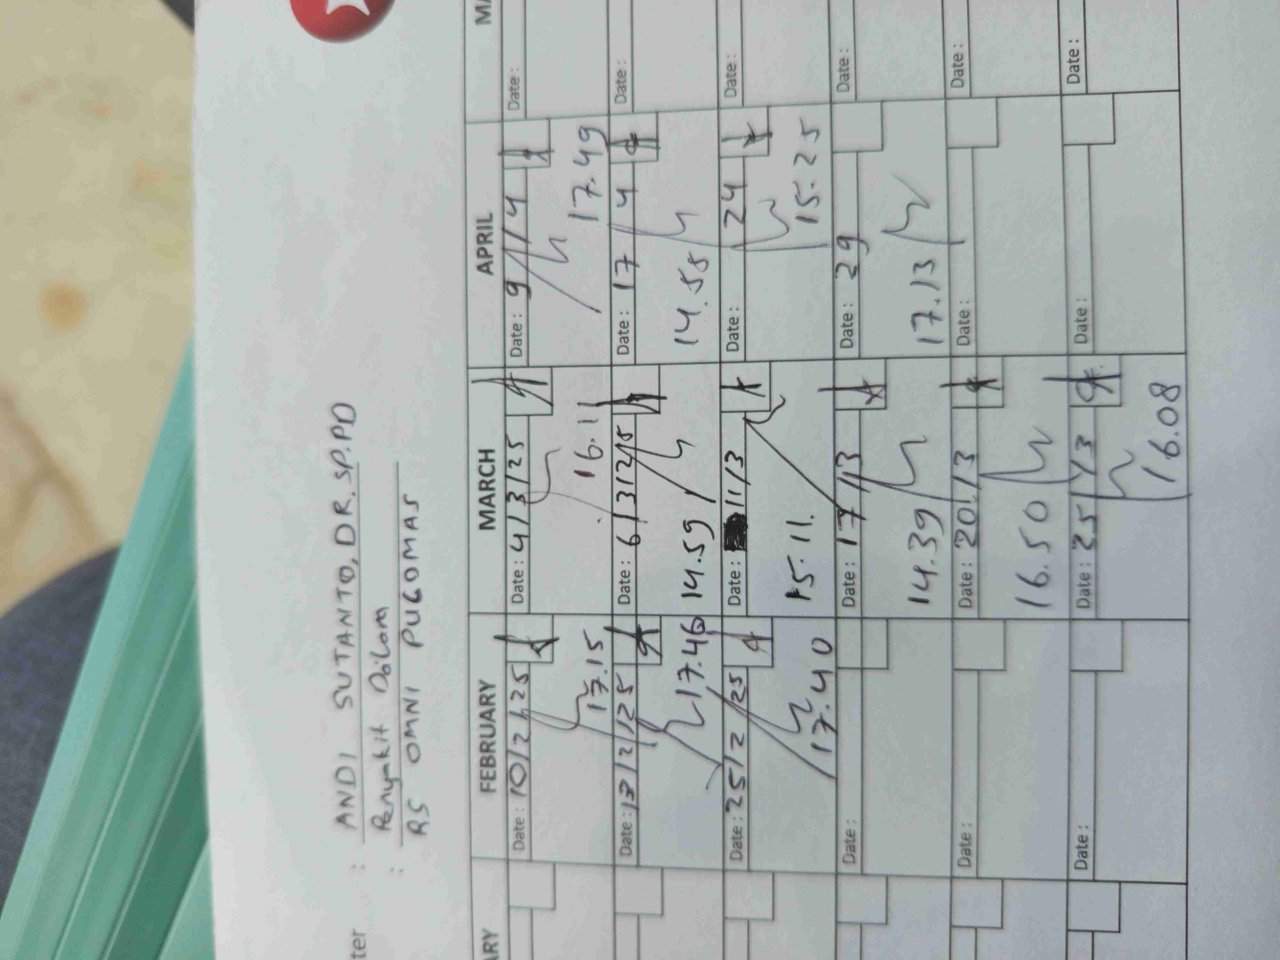 ter : ANDI SUTANTO, DR. SP.PD
Penyakit Dalam
: RS OMNI PULOMAS
ARY FEBRUARY MARCH APRIL MA
Date : 10/2/25 Date : 4/3/25 Date : 9/4 Date :
17.15 16.11 17.49
Date : 13/2/25 Date : 6/3/25 Date : 17/4 Date :
17.46 14.59 14.58
Date : 25/2 25 Date : 11/3 Date : 24 Date :
17.40 15.11. 15.25
Date : Date : 17/3 Date : 29 Date :
14.39 17.13
Date : Date : 20/3 Date : Date :
16.50
Date : Date : 25/3 Date : Date :
16.08